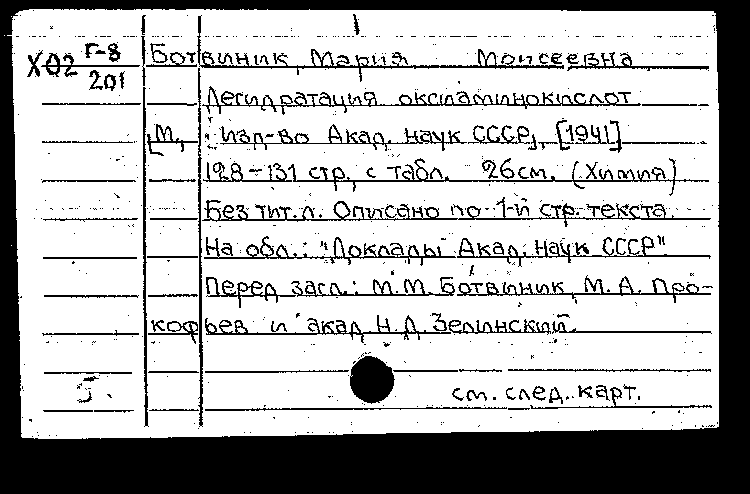 Х02 Г-8 Ботвиник, Мария Моисеевна
201
Дегидратация оксиаминокислот
[М., : Изд-во Акад. наук СССР], [1941]
128-131 стр., с табл. 26 см. (Химия)
Без тит. л. Описано по 1-й стр. текста.
На обл.: "Доклады Акад. наук СССР"
Перед загл.: М.М. Ботвиник, М.А. Про-
кофьев и акад. Н.Д. Зелинский.
5.
см. след. карт.